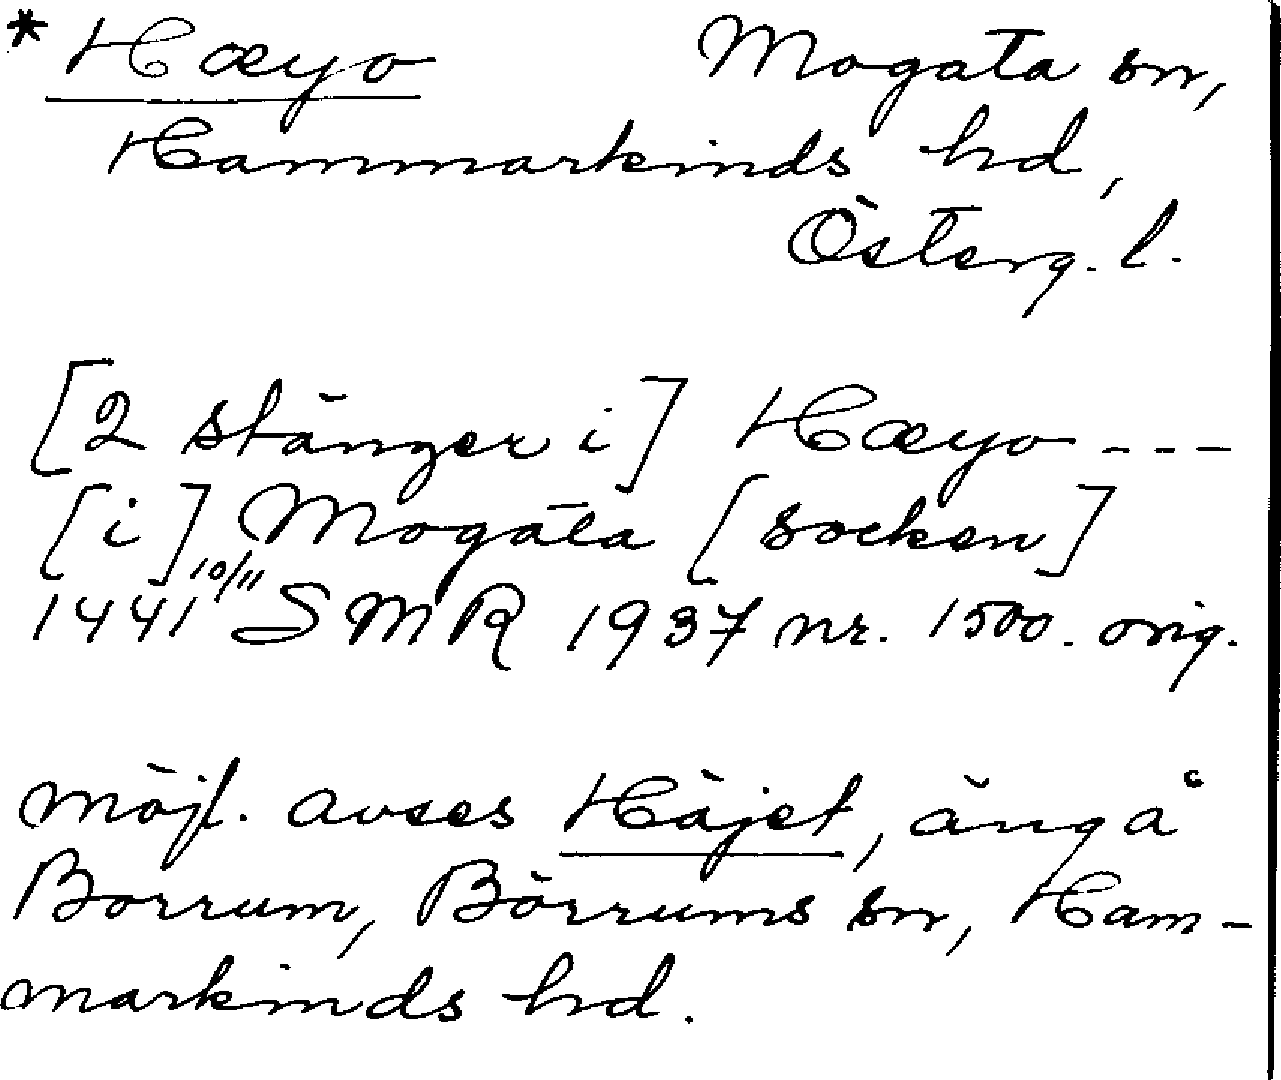 * Hæyo Mogata sn,
Hammarkinds hd,
Österg. l.
[2 stänger i] Hæyo ---
[i] Mogata [socken]
1441 10/11 SMR 1937 nr. 1500. orig.
möjl. avses Häjet, äng å
Borrum, Börrums sn, Ham-
markinds hd.